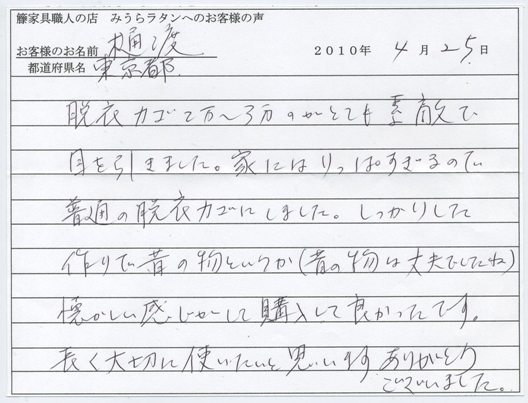 籐家具職人の店　みうらラタンへのお客様の声
お客様のお名前 樋渡　2010年 4月25日
都道府県名 東京都
脱衣カゴ2万〜3万のがとても素敵で
目を引きました。家にはりっぱすぎるので
普通の脱衣カゴにしました。しっかりした
作りで昔の物というか(昔の物は丈夫でしたね)
懐かしい感じがして購入して良かったです。
長く大切に使いたいと思います ありがとう
ございました。